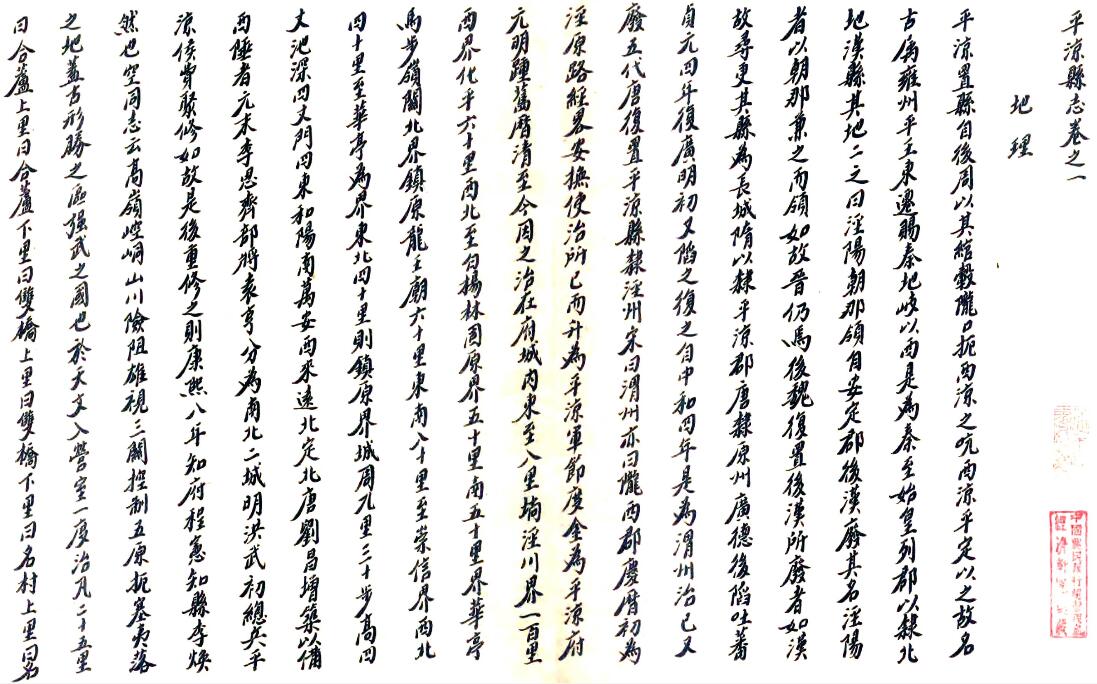 平涼縣志卷之一
地理
平涼置縣自後周以其綰轂隴口扼西涼之吭西涼平定以之故名
古為雍州平王東遷賜秦地岐以西是為秦至始皇列郡以隸北
地漢縣其地二之曰涇陽朝那領自安定郡後漢廢其名涇陽
者以朝那兼之而領如故晉仍焉後魏復置後漢所廢者如漢
故尋更其縣為長城隋以隸平涼郡唐隸原州廣德後陷吐蕃
貞元四年復廣明初又陷之復之自中和四年是為渭州治已又
廢五代唐復置平涼縣隸涇州宋曰渭州亦曰隴西郡慶曆初為
涇原路經畧安撫使治所已而升為平涼軍節度金為平涼府
元明踵舊曆清至今因之治在府城內東至八里墕涇川界一百里
西界化平六十里西北至白楊林固原界五十里南五十里界華亭
馬步嶺關北界鎮原龍王廟六十里東南八十里至崇信界西北
四十里至華亭為界東北四十里則鎮原界城周九里三十步高四
丈池深四丈門四東和陽南萬安西來遠北定北唐劉昌增築以備
西陲者元末李思齊部將袁亨分為南北二城明洪武初總兵平
涼侯費聚修如故是後重修之則康熙八年知府程憲知縣李煥
然也空同志云高嶺崆峒山川險阻雄視三關控制五原扼塞夷落
之地蓋古形勝之區强武之國也於天文入營室一度治凡二十五里
曰合蘆上里曰合蘆下里曰雙橋上里曰雙橋下里曰名村上里曰名